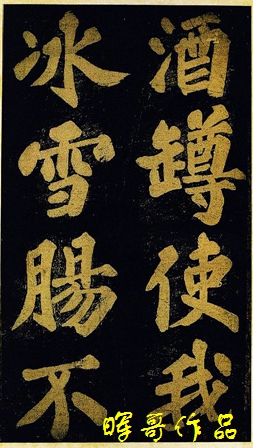 酒罇使我
冰雪腸不
暉哥作品